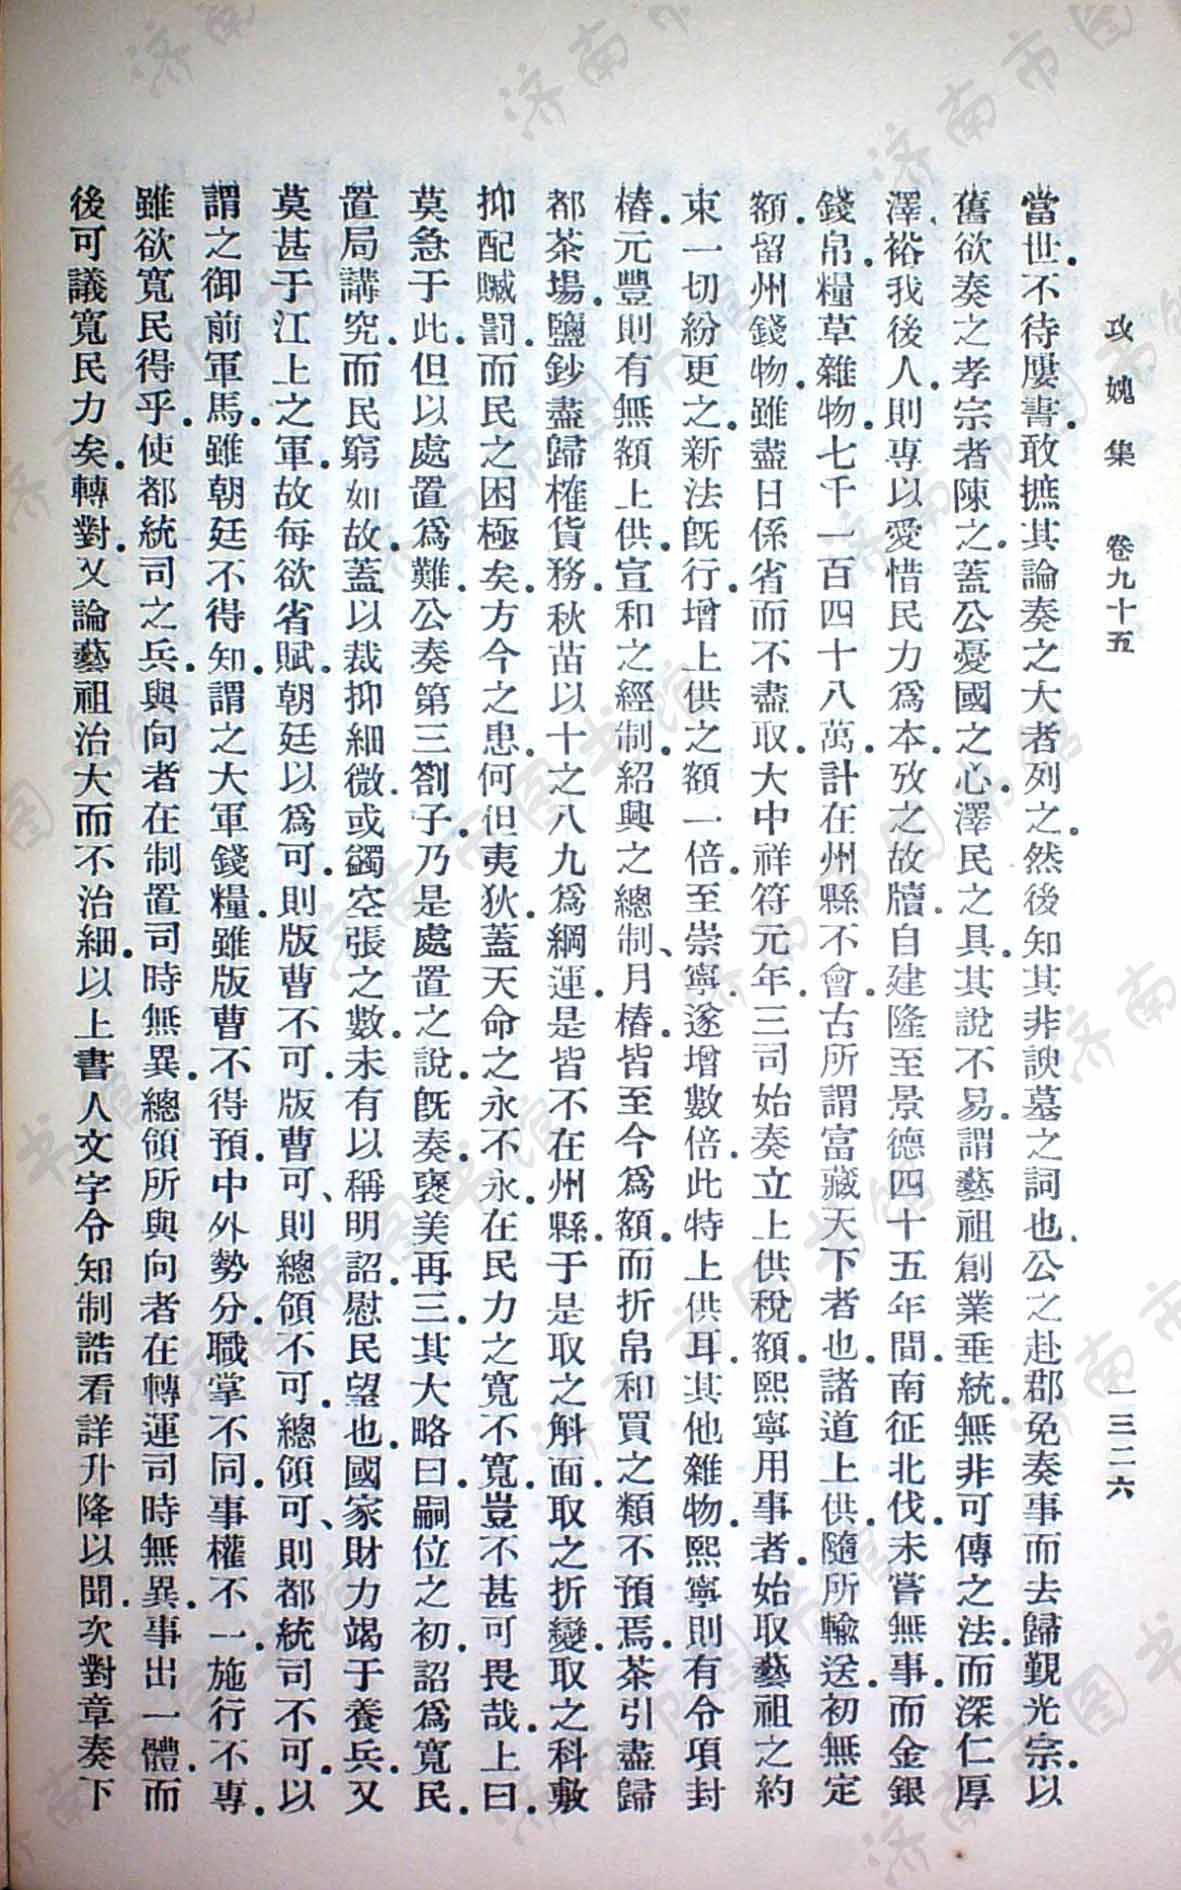 攻媿集　卷九十五　一三二六
當世.不待屢書.敢摭其論奏之大者列之.然後知其非諛墓之詞也.公之赴郡免奏事而去歸覲光宗.以
舊欲奏之孝宗者陳之.蓋公憂國之心.澤民之具.其說不易.謂藝祖創業垂統.無非可傳之法.而深仁厚
澤、裕我後人.則專以愛惜民力爲本.攷之故牘.自建隆至景德四十五年間.南征北伐.未嘗無事.而金銀
錢帛.糧草雜物.七千一百四十八萬.計在州縣不會.古所謂富藏天下者也.諸道上供.隨所輸送.初無定
額.留州錢物.雖盡日係省而不盡取.大中祥符元年.三司始奏立上供稅額.熙寧用事者.始取藝祖之約
束一切紛更之.新法旣行.增上供之額一倍.至崇寧.遂增數倍.此特上供耳.其他雜物.熙寧則有令項封
樁.元豐則有無額上供.宣和之經制.紹興之總制、月樁.皆至今爲額.而折帛和買之類不預焉.茶引盡歸
都茶場.鹽鈔盡歸榷貨務.秋苗以十之八九爲綱運.是皆不在州縣.于是取之斛面.取之折變.取之科敷
抑配贓罰.而民之困極矣.方今之患.何但夷狄.蓋天命之永不永.在民力之寬不寬.豈不甚可畏哉.上曰.
莫急于此.但以處置爲難.公奏第三劄子.乃是處置之說.旣奏.襃美再三.其大略曰.嗣位之初.詔爲寬民.
置局講究.而民窮如故.蓋以裁抑細微.或蠲空張之數.未有以稱明詔.慰民望也.國家財力竭于養兵.又
莫甚于江上之軍.故每欲省賦.朝廷以爲可.則版曹不可.版曹可、則總領不可.總領可、則都統司不可.以
謂之御前軍馬.雖朝廷不得知.謂之大軍錢糧.雖版曹不得預.中外勢分.職掌不同.事權不一.施行不專.
雖欲寬民得乎.使都統司之兵.與向者在制置司時無異.總領所與向者在轉運司時無異.事出一體.而
後可議寬民力矣.轉對.又論藝祖治大而不治細.以上書人文字令知制誥看詳升降以聞.次對章奏下